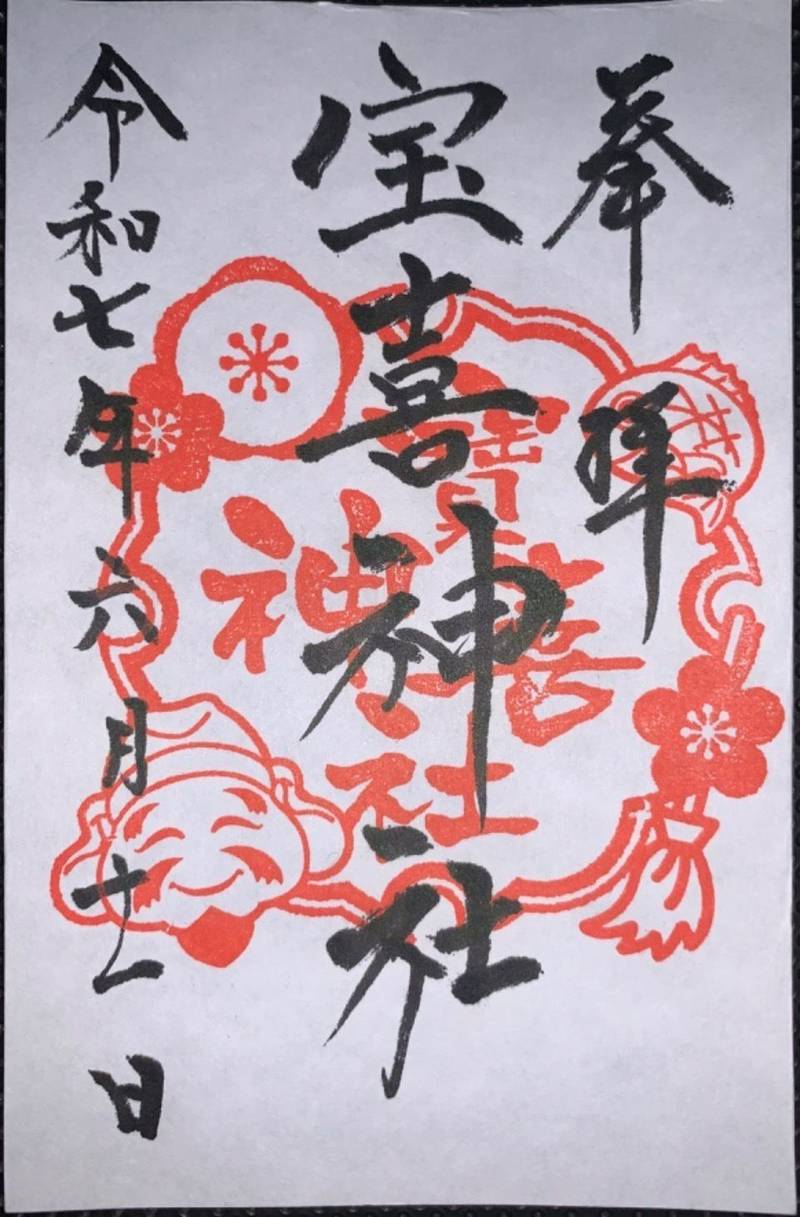 奉拝
宝喜神社
寳喜
神社
令和七年六月十一日